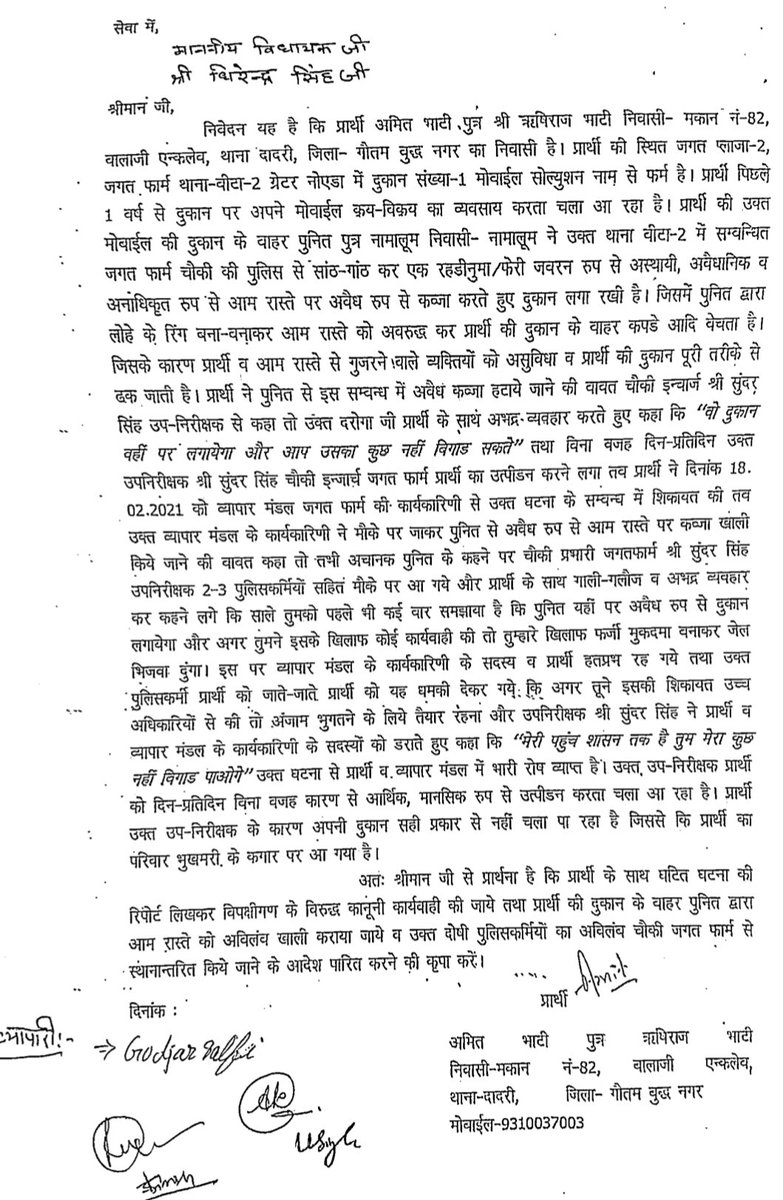 सेवा में,
माननीय विधायक जी
श्री धिरेन्द्र सिंह जी
श्रीमानं जी,
निवेदन यह है कि प्रार्थी अमित भाटी पुत्र श्री ऋषिराज भाटी निवासी- मकान नं-82,
वालाजी एन्कलेव, थाना दादरी, जिला- गौतम वुद्ध नगर का निवासी है। प्रार्थी की स्थित जगत प्लाजा-2,
जगत फार्म थाना-वीटा-2 ग्रेटर नोएडा में दुकान संख्या-1 मोवाईल सोल्युशन नाम से फर्म है। प्रार्थी पिछले
1 वर्ष से दुकान पर अपने मोवाईल क्रय-विक्रय का व्यवसाय करता चला आ रहा है। प्रार्थी की उक्त
मोवाईल की दुकान के वाहर पुनित पुत्र नामालूम निवासी- नामालूम ने उक्त थाना वीटा-2 में सम्वन्धित
जगत फार्म चौकी की पुलिस से सांठ-गांठ कर एक रहडीनुमा/फेरी जवरन रुप से अस्थायी, अवैधानिक व
अनाधिकृत रुप से आम रास्ते पर अवैध रुप से कव्जा करते हुए दुकान लगा रखी है। जिसमें पुनित द्वारा
लोहे के रिंग वना-वनाकर आम रास्ते को अवरुद्ध कर प्रार्थी की दुकान के वाहर कपडे आदि वेचता है।
जिसके कारण प्रार्थी व आम रास्ते से गुजरने वाले व्यक्तियों को असुविधा व प्रार्थी की दुकान पूरी तरीके से
ढक जाती है। प्रार्थी ने पुनित से इस सम्वन्ध में अवैध कव्जा हटाये जाने की वावत चौकी इन्चार्ज श्री सुंदर
सिंह उप-निरीक्षक से कहा तो उक्त दरोगा जी प्रार्थी के साथं अभद्र-व्यवहार करते हुए कहा कि "वो दुकान
वहीं पर लगायेगा और आप उसका कुछ नहीं विगाड सकते" तथा विना वजह दिन-प्रतिदिन उक्त
उपनिरीक्षक श्री सुंदर सिंह चौकी इन्जार्ज जगत फार्म प्रार्थी का उत्पीडन करने लगा तव प्रार्थी ने दिनांक 18.
02.2021 को व्यापार मंडल जगत फार्म की कार्यकारिणी से उक्त घटना के सम्वन्ध में शिकायत की तव
उक्त व्यापार मंडल के कार्यकारिणी ने मौके पर जाकर पुनित से अवैध रुप से आम रास्ते पर कव्जा खाली
किये जाने की वावत कहा तो तभी अचानक पुनित के कहने पर चौकी प्रभारी जगतफार्म श्री सुंदर सिंह
उपनिरीक्षक 2-3 पुलिसकर्मियों सहित मौके पर आ गये और प्रार्थी के साथ गाली-गलौज व अभद्र व्यवहार
कर कहने लगे कि साले तुमको पहले भी कई वार समझाया है कि पुनित यहीं पर अवैध रुप से दुकान
लगायेगा और अगर तुमने इसके खिलाफ कोई कार्यवाही की तो तुम्हारे खिलाफ फर्जी मुकदमा वनाकर जेल
भिजवा दुंगा। इस पर व्यापार मंडल के कार्यकारिणी के सदस्य व प्रार्थी हतप्रभ रह गये तथा उक्त
पुलिसकर्मी प्रार्थी को जाते-जाते प्रार्थी को यह धमकी देकर गये कि अगर तूने इसकी शिकायत उच्च
अधिकारियों से की तो अंजाम भुगतने के लिये तैयार रहना और उपनिरीक्षक श्री सुंदर सिंह ने प्रार्थी व
व्यापार मंडल के कार्यकारिणी के सदस्यों को डराते हुए कहा कि "मेरी पहुंच शासन तक है तुम मेरा कुछ
नहीं विगाड पाओगे" उक्त घटना से प्रार्थी व व्यापार मंडल में भारी रोष व्याप्त है। उक्त उप-निरीक्षक प्रार्थी
को दिन-प्रतिदिन विना वजह कारण से आर्थिक, मानसिक रुप से उत्पीडन करता चला आ रहा है। प्रार्थी
उक्त उप-निरीक्षक के कारण अपनी दुकान सही प्रकार से नहीं चला पा रहा है जिससे कि प्रार्थी का
परिवार भुखमरी के कगार पर आ गया है।
अतः श्रीमान जी से प्रार्थना है कि प्रार्थी के साथ घटित घटना की
रिपोर्ट लिखकर विपक्षीगण के विरुद्ध कानूनी कार्यवाही की जाये तथा प्रार्थी की दुकान के वाहर पुनित द्वारा
आम रास्ते को अविलंव खाली कराया जाये व उक्त दोषी पुलिसकर्मियों का अविलंव चौकी जगत फार्म से
स्थानान्तरित किये जाने के आदेश पारित करने की कृपा करें।
प्रार्थी Amit
दिनांक :
व्यापारी:-
अमित भाटी पुत्र ऋषिराज भाटी
निवासी-मकान नं-82, वालाजी एन्कलेव,
थाना-दादरी, जिला- गौतम वुद्ध नगर
मोवाईल-9310037003